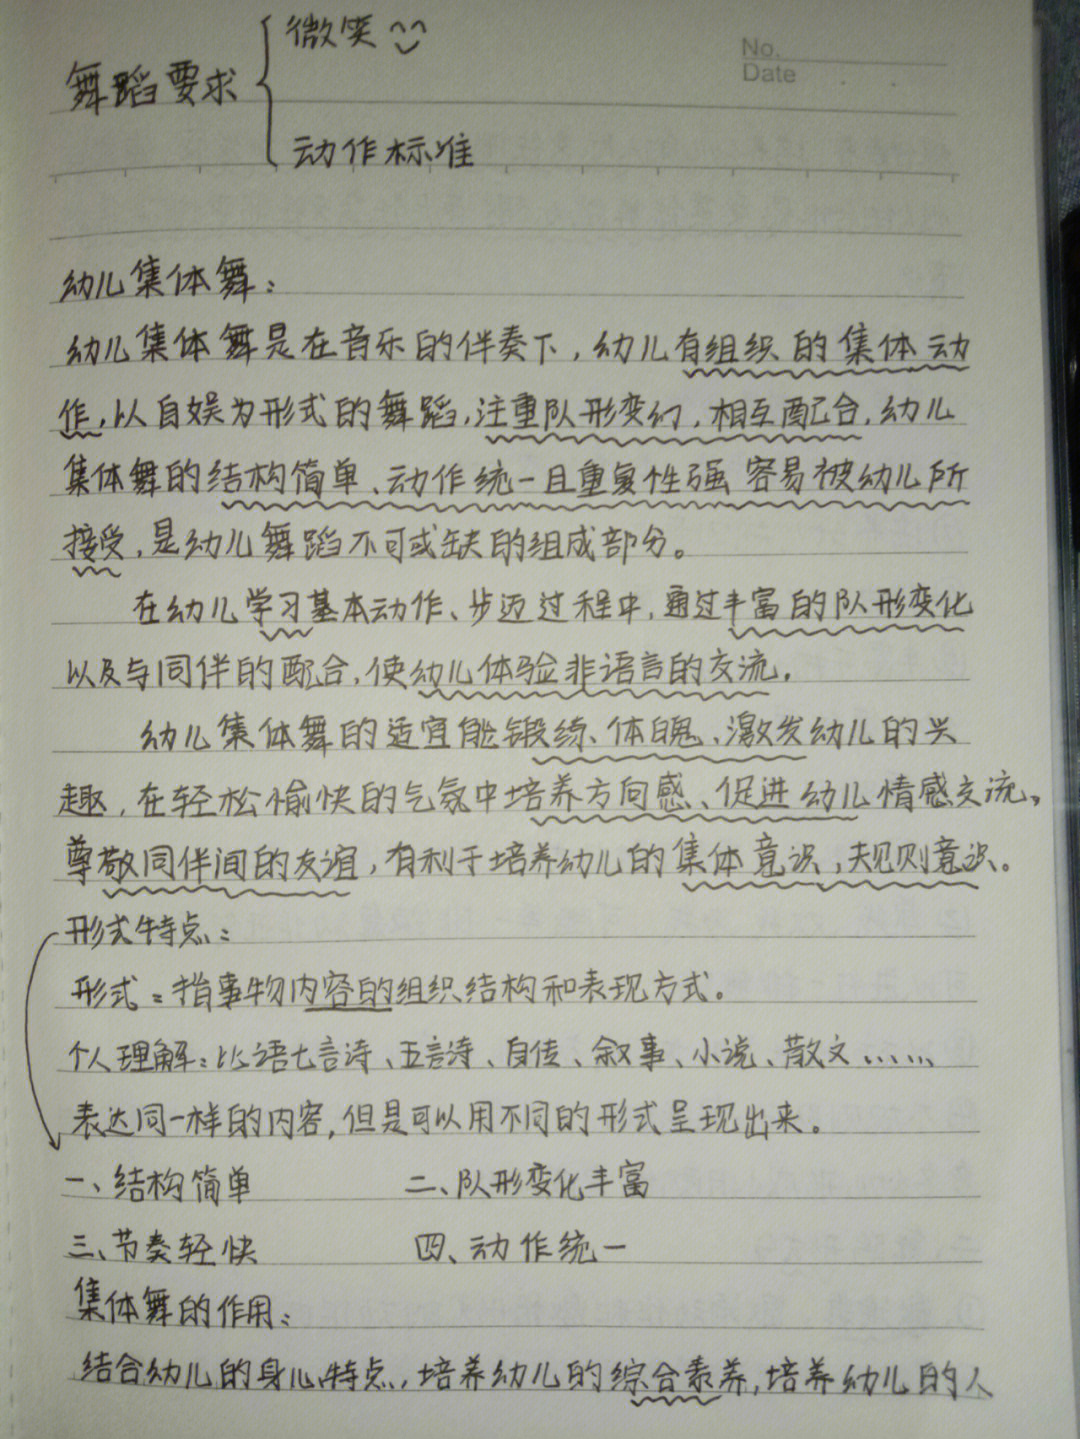 微笑
No.
Date
舞蹈要求
动作标准
幼儿集体舞：
幼儿集体舞是在音乐的伴奏下，幼儿有组织的集体动
作，以自娱为形式的舞蹈，注重队形变幻，相互配合，幼儿
集体舞的结构简单、动作统一且重复性强 容易被幼儿所
接受，是幼儿舞蹈不可或缺的组成部分。
在幼儿学习基本动作、步迈过程中，通过丰富的队形变化
以及与同伴的配合，使幼儿体验非语言的交流，
幼儿集体舞的适宜能锻练、体魄、激发幼儿的兴
趣，在轻松愉快的气氛中培养方向感、促进幼儿情感交流，
尊敬同伴间的友谊，有利于培养幼儿的集体意识，规则意识。
形式特点：
形式：指事物内容的组织结构和表现方式。
个人理解：比语七言诗、五言诗、自传、叙事、小说、散文……
表达同一样的内容，但是可以用不同的形式呈现出来。
一、结构简单 二、队形变化丰富
三、节奏轻快 四、动作统一
集体舞的作用：
结合幼儿的身心特点，培养幼儿的综合素养，培养幼儿的人